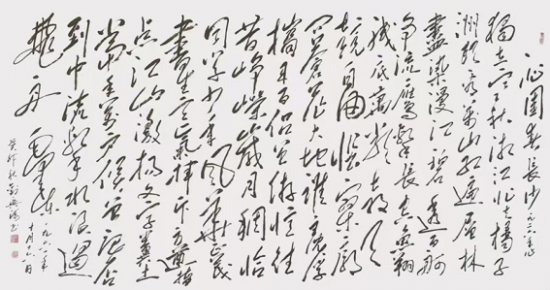 沁园春长沙
独立寒秋湘江北去橘子
洲头看万山红遍层林
尽染漫江碧透百舸
争流鹰击长空鱼翔
浅底万类霜天
竞自由怅寥廓
问苍茫大地谁主沉浮
携来百侣曾游忆往
昔峥嵘岁月稠恰
同学少年风华正茂
书生意气挥斥方遒指
点江山激扬文字粪土
当年万户侯曾记否
到中流击水浪遏
飞舟毛泽东